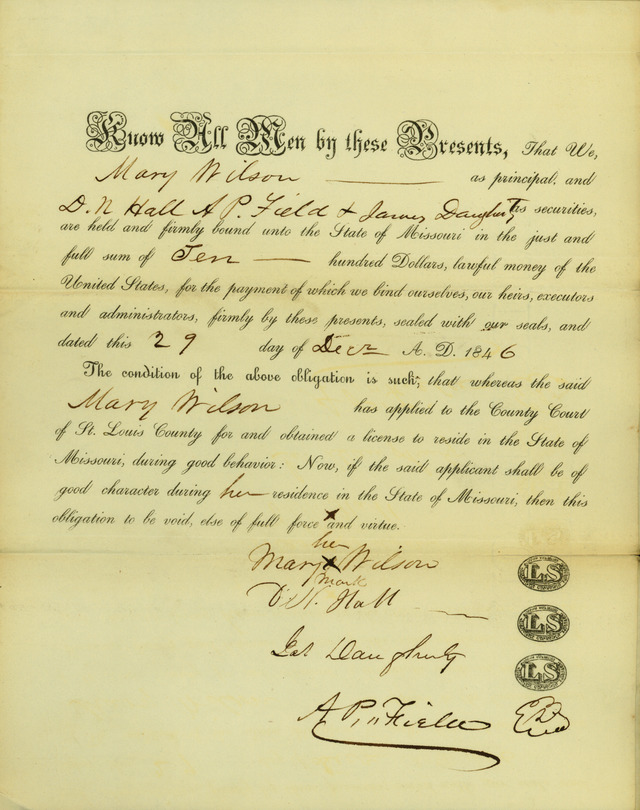 Know All Men by these Presents, That We,
Mary Wilson as principal, and
D. N Hall A P. Field & James Daugherty as securities,
are held and firmly bound unto the State of Missouri in the just and
full sum of Ten hundred Dollars, lawful money of the
United States, for the payment of which we bind ourselves, our heirs, executors
and administrators, firmly by these presents, sealed with our seals, and
dated this 29 day of Decr A. D. 1846
The condition of the above obligation is such, that whereas the said
Mary Wilson has applied to the County Court
of St. Louis County for and obtained a license to reside in the State of
Missouri, during good behavior: Now, if the said applicant shall be of
good character during her residence in the State of Missouri, then this
obligation to be void, else of full force and virtue.
her
Mary X Wilson
mark
D. N. Hall
Jas Daugherty
A P. Field
LS
LS
LS